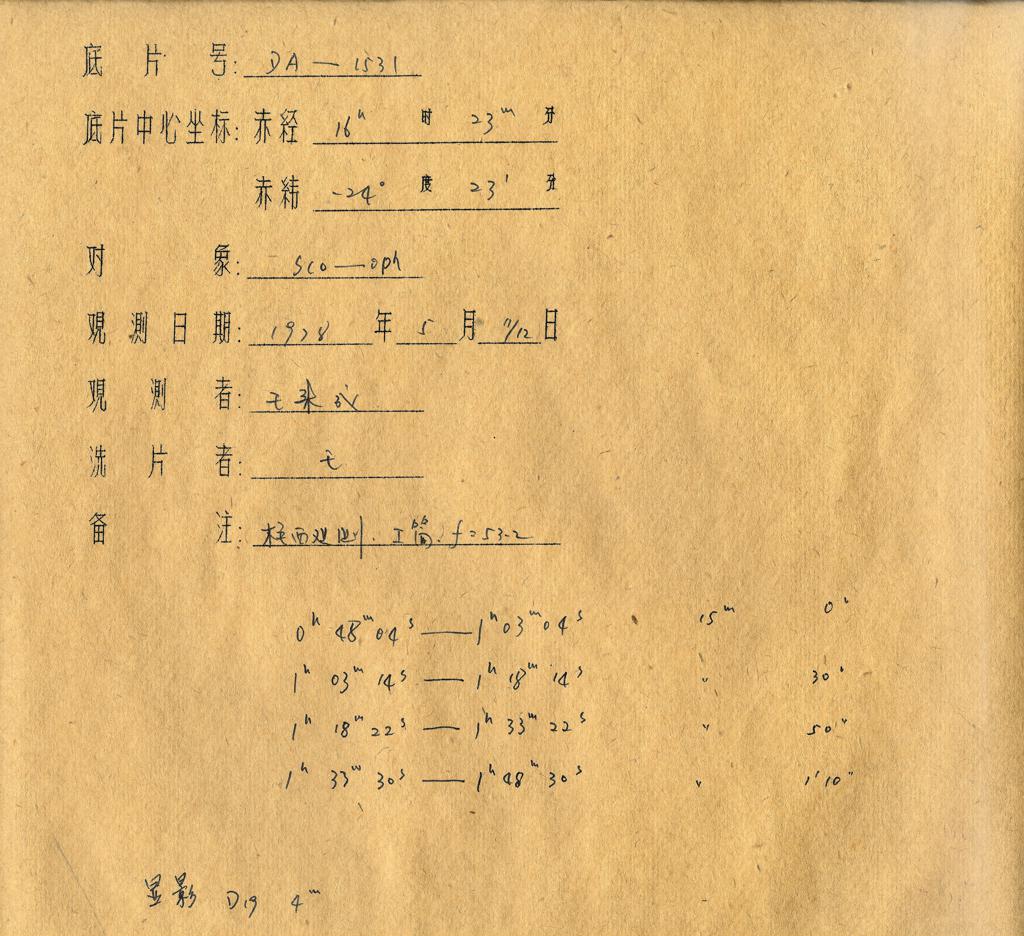 底片号: DA—1531
底片中心坐标: 赤经 16ʰ 时 23ᵐ 分
赤纬 -24° 度 23′ 分
对象: Sco—oph
观测日期: 1978 年 5 月 11/12 日
观测者: 王
洗片者: 王
备注: 西观测. 工筒. f=53.2
0ʰ 48ᵐ 04ˢ — 1ʰ 03ᵐ 04ˢ 15ᵐ 0"
1ʰ 03ᵐ 14ˢ — 1ʰ 18ᵐ 14ˢ " 30"
1ʰ 18ᵐ 22ˢ — 1ʰ 33ᵐ 22ˢ " 50"
1ʰ 33ᵐ 30ˢ — 1ʰ 48ᵐ 30ˢ " 1'10"
显影 D19 4ᵐ